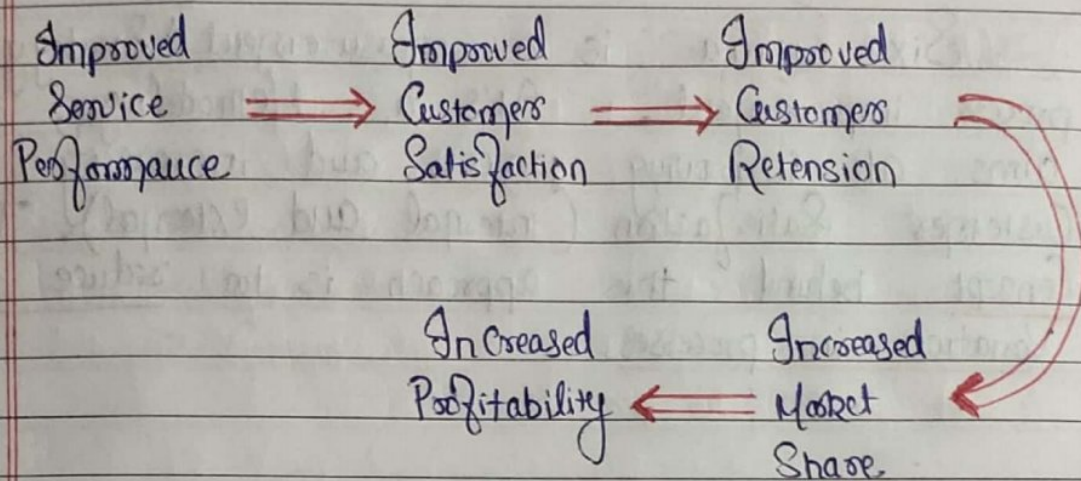 Improved
Service
Performance
Improved
Customers
Satisfaction
Improved
Customers
Retension
Increased
Market
Share
Increased
Profitability